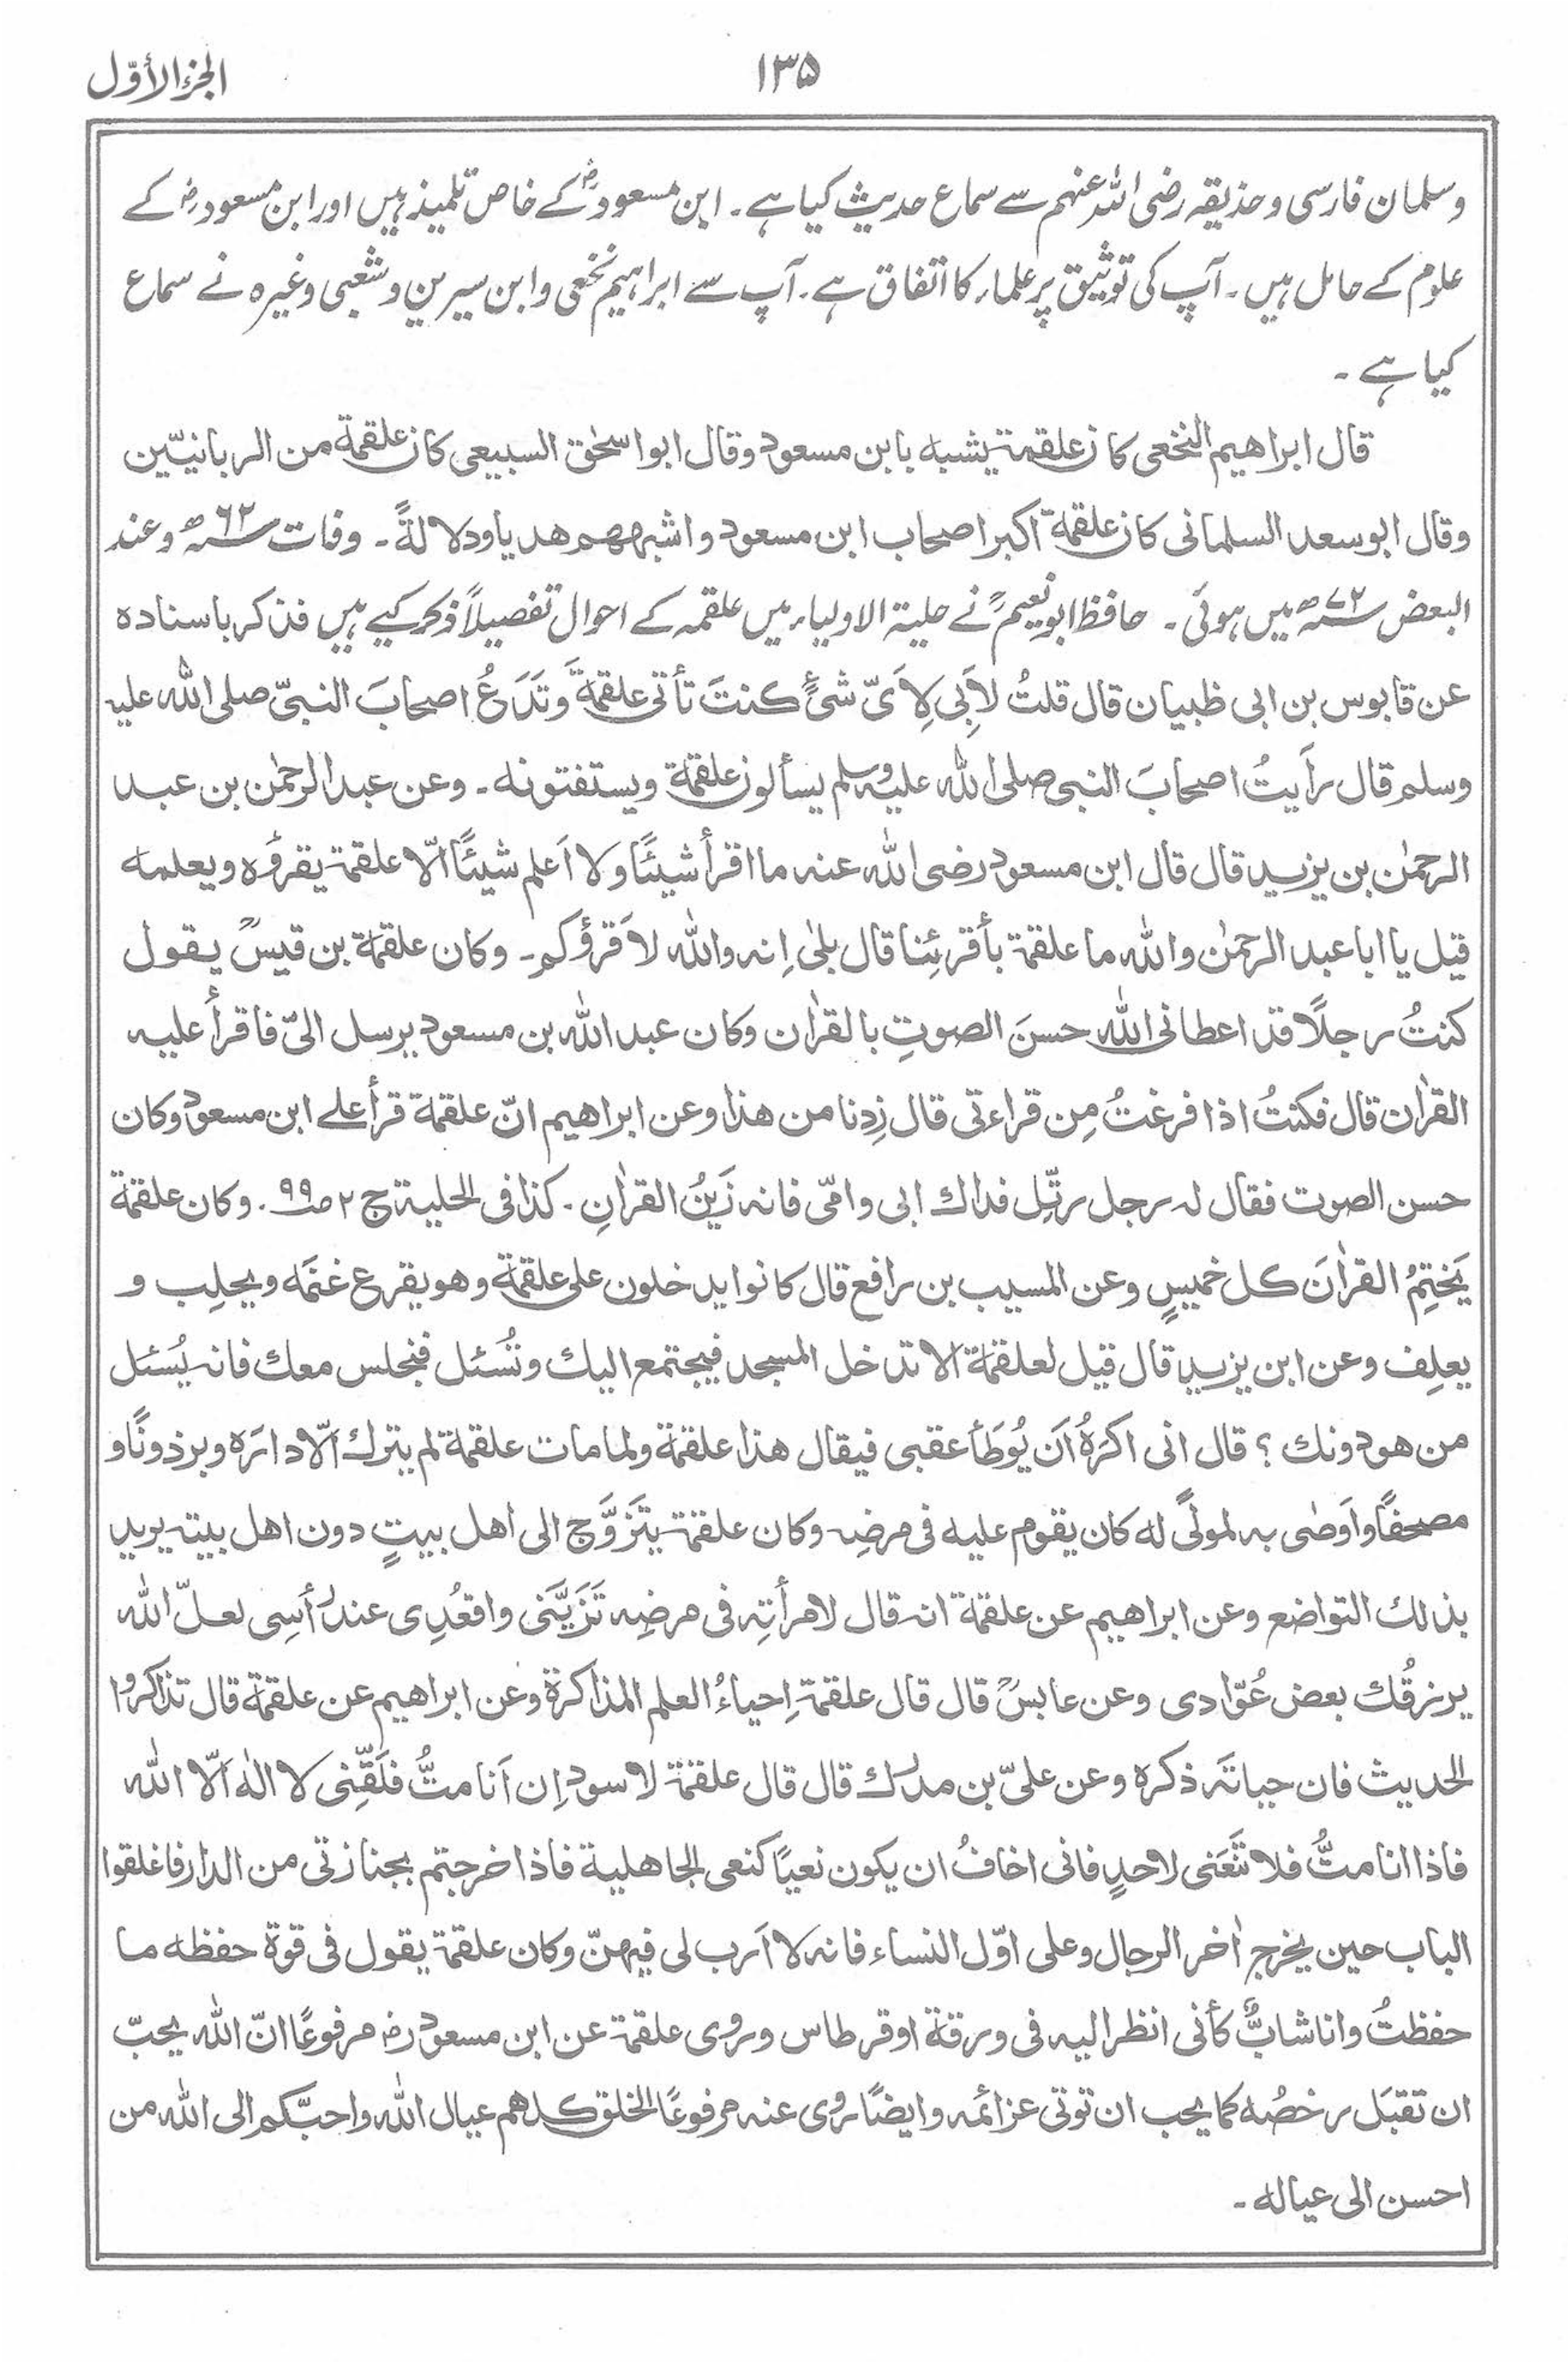 الجزء الأوّل
۱۳۵
وسلمان فارسی وحذیفہ رضی اللہ عنہم سے سماع حدیث کیا ہے۔ ابن مسعودؓ کے خاص تلمیذ ہیں اور ابن مسعودؓ کے
علوم کے حامل ہیں۔ آپ کی توثیق پر علماء کا اتفاق ہے۔ آپ سے ابراہیم نخعی وابن سیرین وشعبی وغیرہ نے سماع
کیا ہے۔
قال ابراھیم النخعی کان علقمۃ یشبہ بابن مسعود وقال ابو اسحٰق السبیعی کان علقمۃ من الربانیّین
وقال ابوسعد السلمانی کان علقمۃ اکبر اصحاب ابن مسعود واشبھھم ھدیا ودلالۃً۔ وفات سنہ ۶۲ھ وعند
البعض سنہ ۷۲ھ میں ہوئی۔ حافظ ابونعیمؒ نے حلیۃ الاولیاء میں علقمہ کے احوال تفصیلاً ذکر کیے ہیں فذکر باسنادہ
عن قابوس بن ابی ظبیان قال قلتُ لاَبِی لِاَیّ شیءٍ کنتَ تأتی علقمۃَ وتَدَعُ اصحابَ النبیّ صلی اللہ علیہ
وسلم قال رأیتُ اصحابَ النبی صلی اللہ علیہ وسلم یسألون علقمۃ ویستفتونہ۔ وعن عبدالرحمٰن بن عبد
الرحمٰن بن یزید قال قال ابن مسعود رضی اللہ عنہ ما اقرأ شیئًا ولا اَعلم شیئًا الّا علقمۃ یقرؤہ ویعلمہ
قیل یا ابا عبد الرحمٰن واللہ ما علقمۃ بأقرئِنا قال بلیٰ اِنہ واللہ لاَقرؤُکم۔ وکان علقمۃ بن قیسؒ یقول
کنتُ رجلًا قد اعطانی اللہ حسنَ الصوتِ بالقراٰن وکان عبد اللہ بن مسعود یرسل الیّ فاقرأ علیہ
القراٰن قال فکنتُ اذا فرغتُ مِن قراءتی قال زِدنا من ھذا وعن ابراھیم انّ علقمۃ قرأ علی ابن مسعود وکان
حسن الصوت فقال لہ رجل رتِّل فداك ابی وامّی فانہ زَینُ القراٰنِ۔ کذا فی الحلیۃ ج ۲ ص ۹۹۔ وکان علقمۃ
یَختِمُ القراٰنَ کل خمیسٍ وعن المسیب بن رافع قال کانوا یدخلون علی علقمۃ وھو یقرع غنمَہ ویحلِب و
یعلِف وعن ابن یزید قال قیل لعلقمۃ الا تدخل المسجد فیجتمع الیك وتُسئل فنجلس معك فانہ یُسئل
من ھو دونك؟ قال انی اکرَہُ اَن یُوطَأ عقبی فیقال ھذا علقمۃ ولما مات علقمۃ لم یترك الّا دارَہ وبرذونًا و
مصحفًا واَوصٰی بہ لمولًی لہ کان یقوم علیہ فی مرضِہ وکان علقمۃ یتزَوَّج الی اھل بیتٍ دون اھل بیتہ یرید
بذلك التواضع وعن ابراھیم عن علقمۃ انہ قال لامرأتِہ فی مرضِہ تَزَیَّنی واقعُدِی عند رأسِی لعلّ اللہ
یرزقُك بعض عُوّادی وعن عابسؒ قال قال علقمۃ اِحیاءُ العلم المذاکرۃ وعن ابراھیم عن علقمۃ قال تذاکروا
الحدیث فان حیاتَہ ذکرہ وعن علیّ بن مدرك قال قال علقمۃ لاسود اِن اَنا متُّ فلَقِّنی لا الٰہ الّا اللہ
فاذا انا متُّ فلا تنَعَنی لاحدٍ فانی اخافُ ان یکون نعیًا کنعی الجاھلیۃ فاذا خرجتم بجنازتی من الدار فاغلقوا
الباب حین یخرج اٰخر الرجال وعلی اوّل النساء فانہ لا اَرب لی فیھنّ وکان علقمۃ یقول فی قوۃ حفظہ ما
حفظتُ وانا شابٌّ کأنی انظر الیہ فی ورقۃ او قرطاس وروی علقمۃ عن ابن مسعودؓ مرفوعًا انّ اللہ یحبّ
ان تقبَل رخصُہ کما یحب ان توتی عزائمہ وایضًا روی عنہ مرفوعًا الخلق کلھم عیال اللہ واحبّکم الی اللہ من
احسن الی عیالہ۔